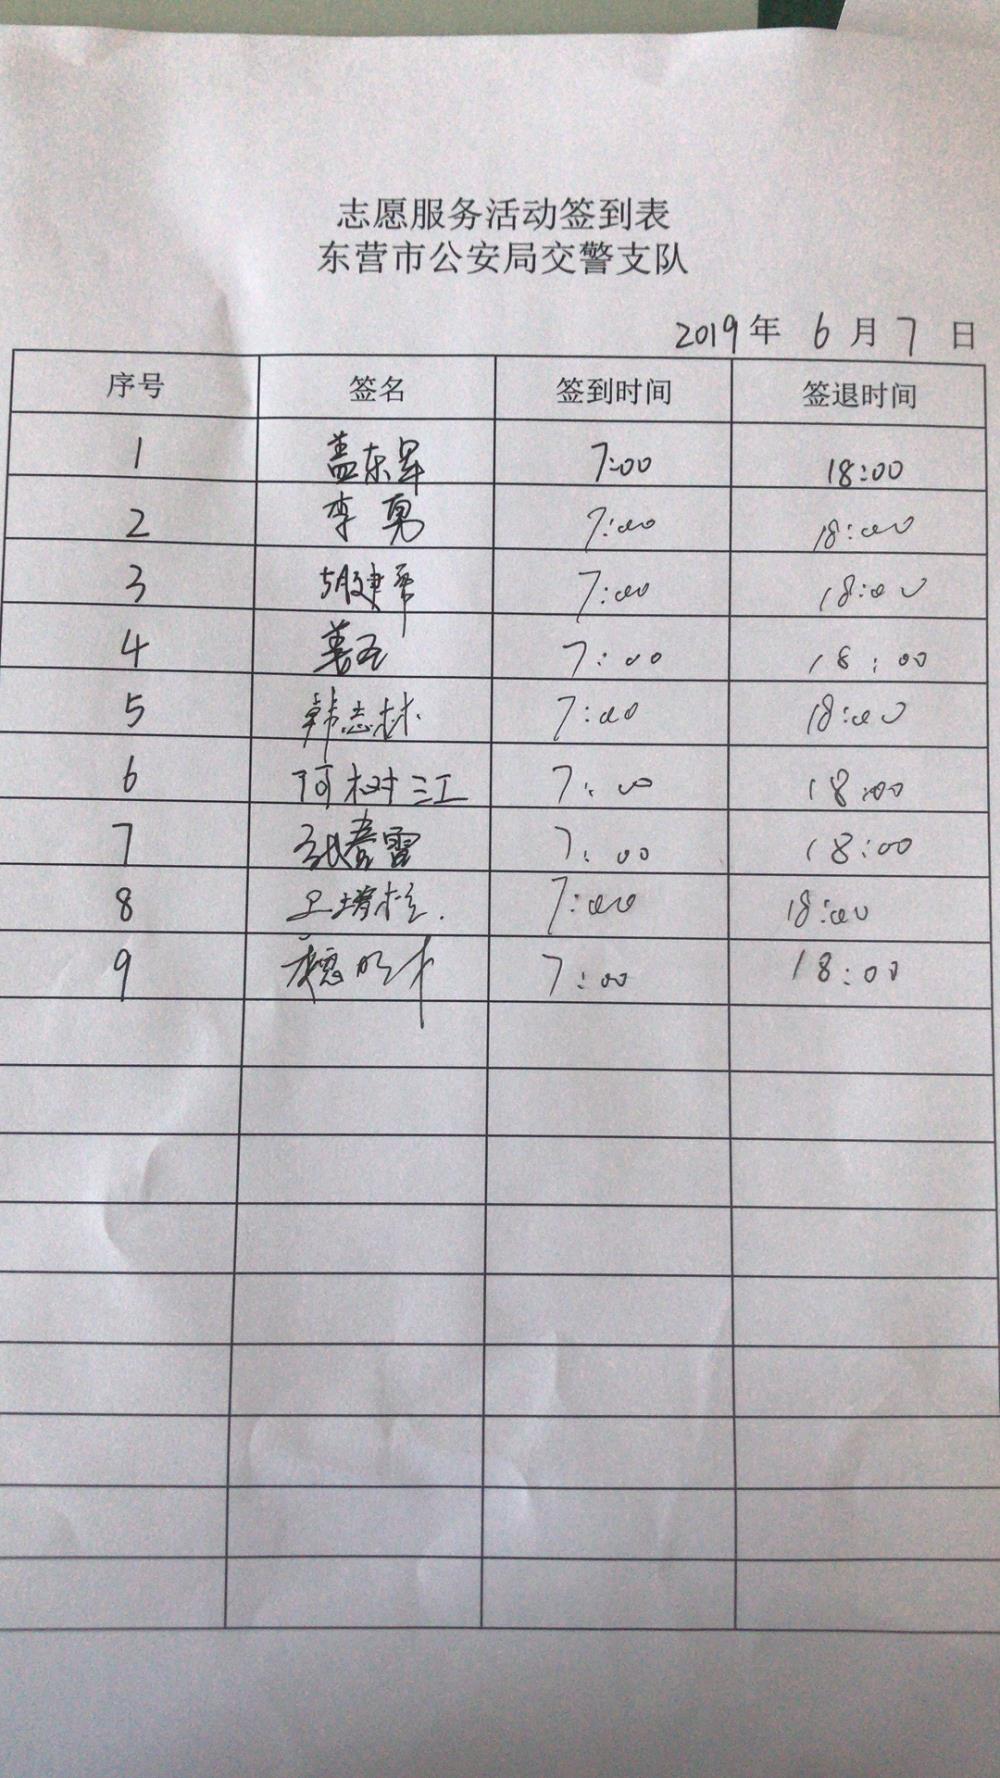 志愿服务活动签到表
东营市公安局交警支队
2019年 6 月 7 日
序号 签名 签到时间 签退时间
1 盖东军 7:00 18:00
2 李勇 7:00 18:00
3 胡建军 7:00 18:00
4 7:00 18:00
5 韩志林 7:00 18:00
6 何树江 7:00 18:00
7 张春雷 7:00 18:00
8 7:00 18:00
9 7:00 18:00